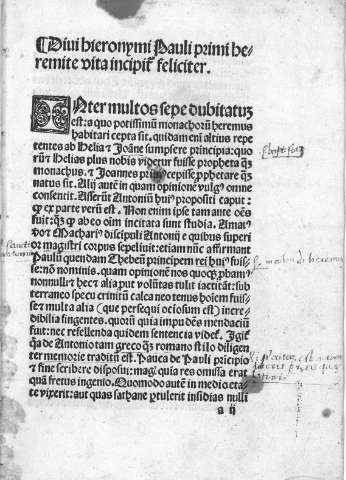 Diui hieronymi Pauli primi he-
remite vita incipit feliciter.
INter multos sepe dubitatuȝ
est: a quo potissimū monachorū heremus
habitari cepta sit. quidam enī altius repe
tentes ab Helia ⁊ Joāne sumpsere principia: quo
rū ⁊ Helias plus nobis videtur fuisse propheta qꝫ
monachus. ⁊ Joannes prius cepisse ꝓphetare qꝫ
natus sit. Alij autē in quam opinionē vulgꝰ omne
consentit. Asserūt Antoniū huiꝰ propositi caput:
qꝫ ex parte verū est. Non enim ipse tam ante oēs
fuit: qꝫ ꝙ abeo oīm incitata sunt studia. Amatꝰ
vō ⁊ Macharꝰ discipuli Antonij e quibus superi
oꝛ magistri corpus sepeliuit: etiamnūc affirmant
Paulū quendam Thebeū principem rei huiꝰ fuis-
se: nō nominis. quam opinionē nos quoqꝫ ꝓbamꝰ
nonnulli hec ⁊ alia put volūtas tulit iactitāt: sub
terraneo specu crinitū calcaneo tenus hoiem fuis-
se ⁊ multa alia (que persequi ociosum est) incre-
dibilia fingentes. quorū quia impudēs mendaciū
fuit: nec refellenda quidem sentencia videt. Jgit
qꝫ de Antonio tam greco qꝫ romano stilo diligen
ter memorie traditū est. Pauca de Pauli principio
⁊ fine scribere disposui: magis quia res omissa erat
quā fretus ingenio. Quomodo autē in medio eta-
te vixerit: aut quas sathane ꝑtulerit insidias nulli
a ij